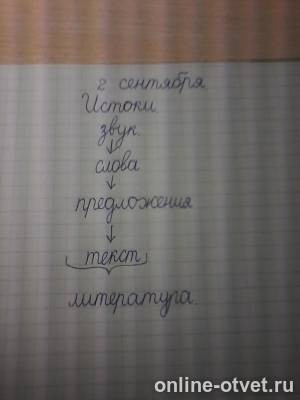 2 сентября
Истоки.
звук.
слова
предложения
текст
литература.
online-otvet.ru